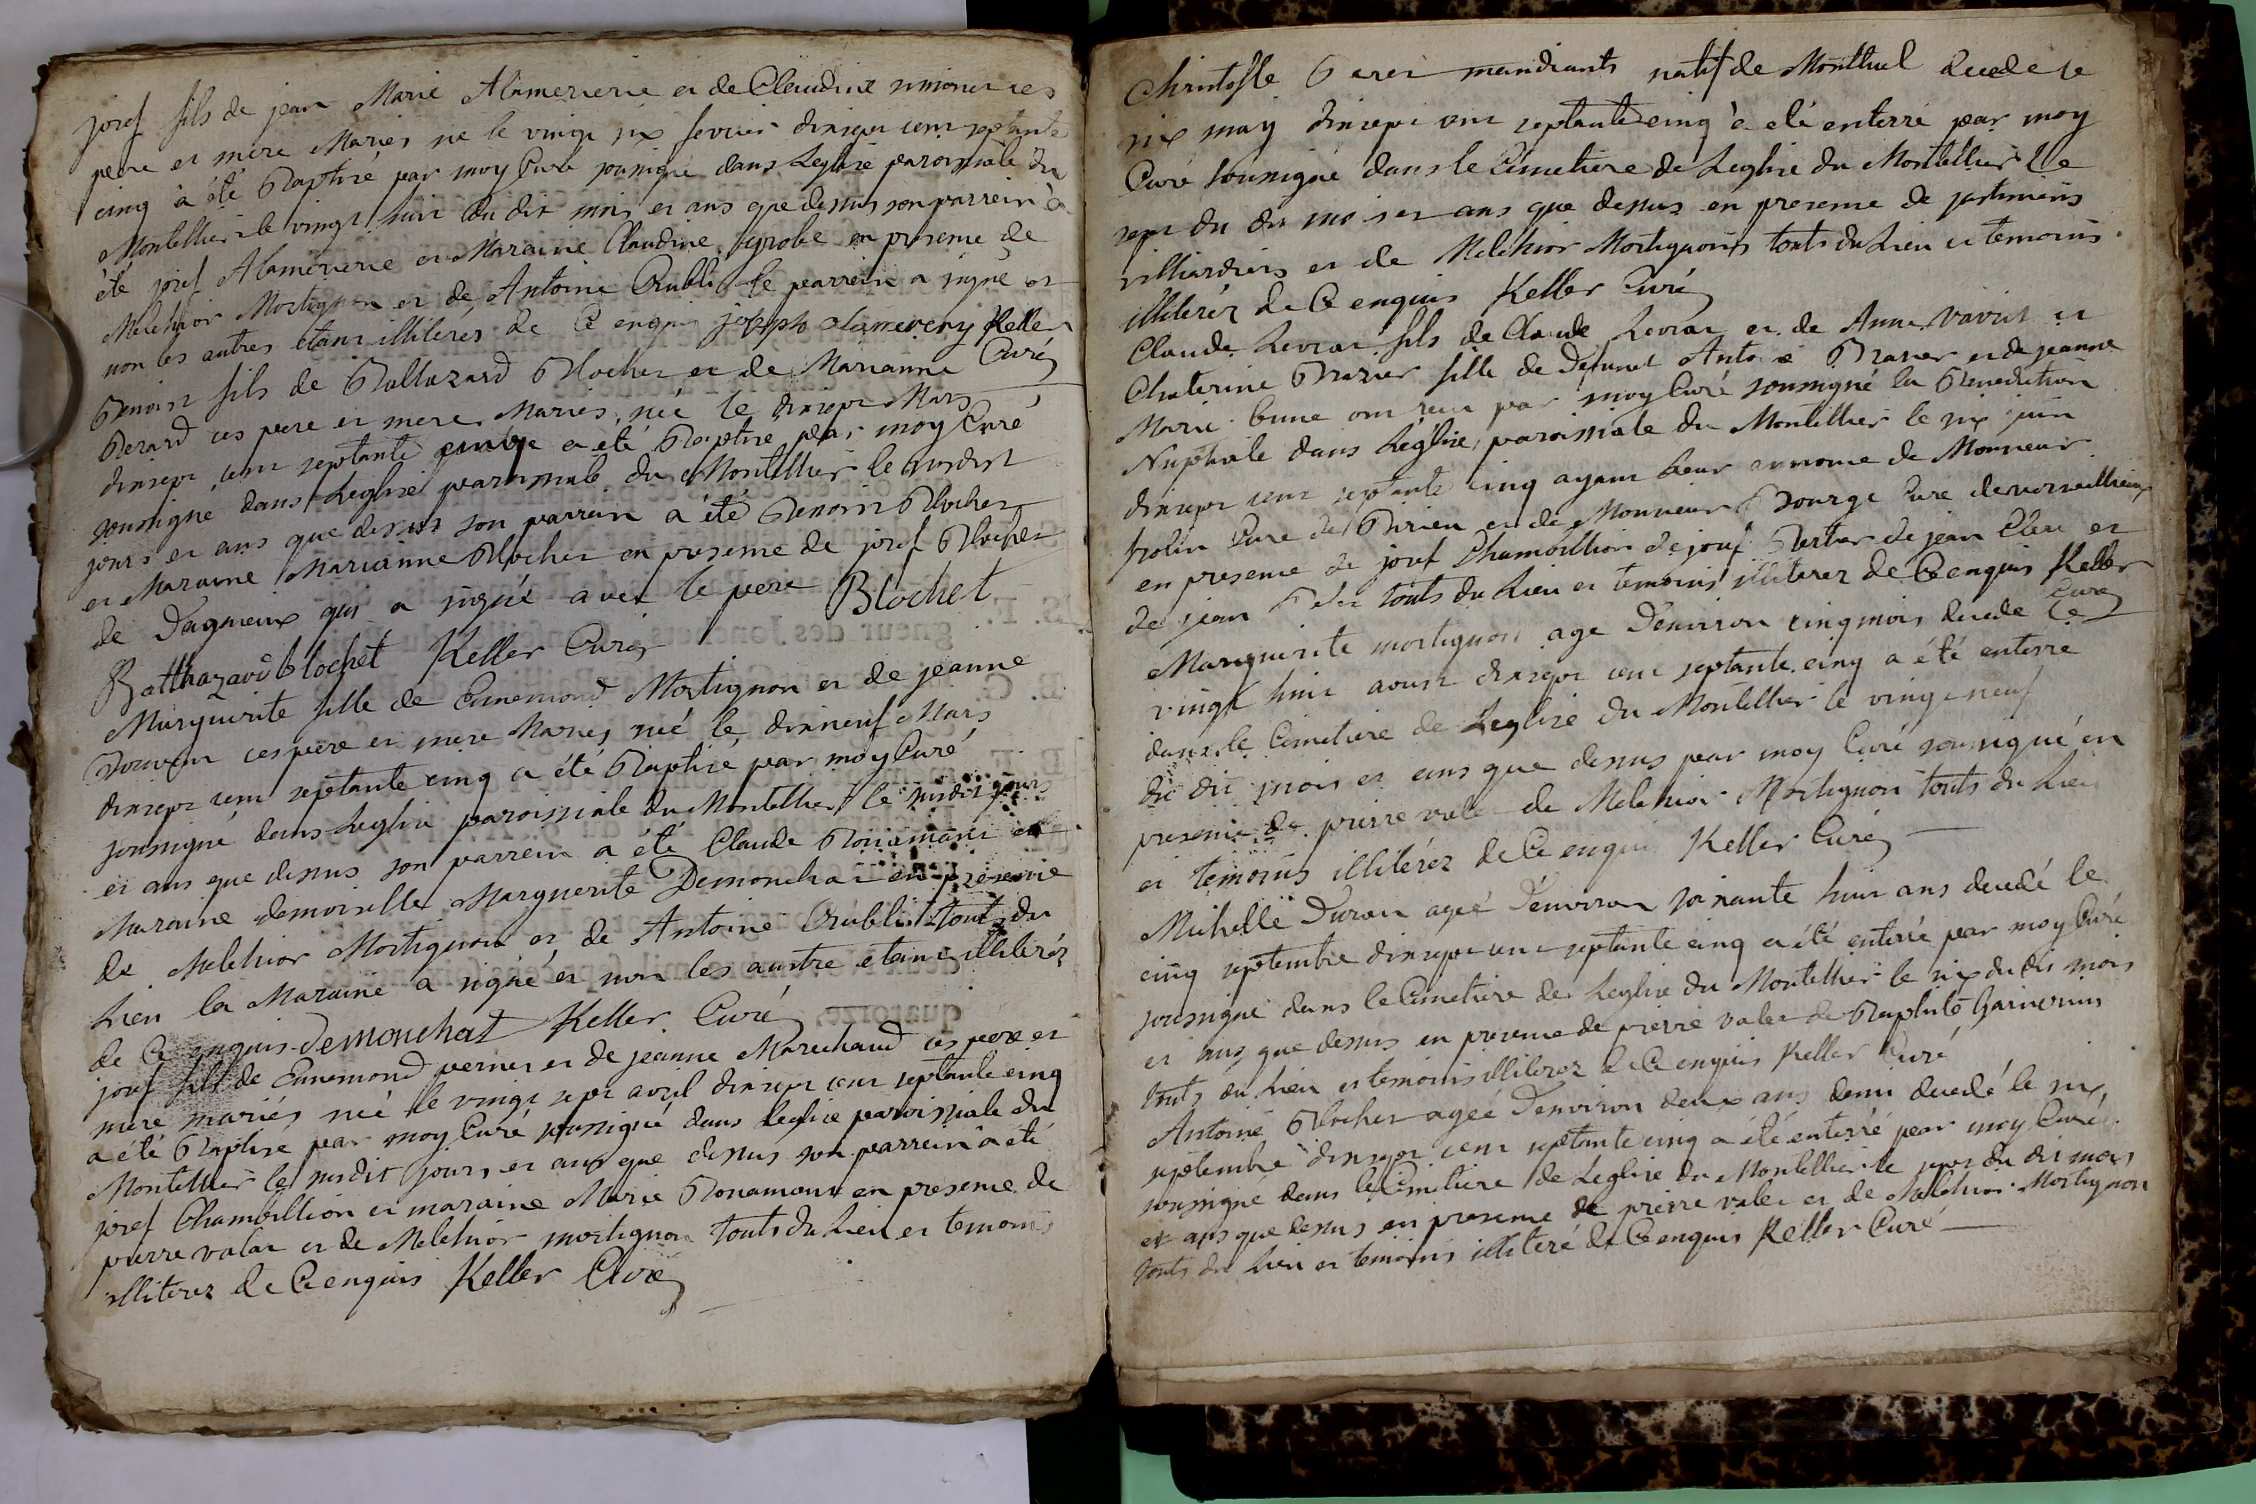 josef fils de jean Marie Alamercerie et de Claudine simonet ses
pere et mere Mariés ne le vingt six fevrier dixsept cent septante
cinq à été Baptisé par moy Curé sousigné dans Leglise paroissiale du
Montellier le vingt huit du dit mois et ans que dessus son parrein à
été josef Alamercerie et Maraine Claudine en presence de
Melchior Mortignon et de Antoine Rublit le parrein a signé et
non les autres étant illiteres de Ce enquis joseph alamercery Keller
Benoist fils de Baltazard Blochet et de Marianne Curé
Berard ses pere et mere Mariés, née le dixsept Mars
dixsept cent septante cinq a été Baptisé par moy Curé
sousigné dans Leglise paroissiale du Montellier le susdit
jours et ans que dessus son parrein a été Benoist Blochet
et Maraine Marianne Blochet en presence de josef Blochet
de Dagneux qui a signé avec le pere Blochet
Balthazard blochet Keller Curé
Marguerite fille de Ennemond Mortignon et de jeanne
ses pere et mere Mariés, née le dixneuf Mars
dixsept cent septante cinq a été Baptisé par moy Curé
sousigné dans Leglise paroissiale du Montellier le susdit jours
et ans que dessus son parrein a été Claude Bonamant et
Maraine demoiselle Marguerite Demonchat en presence
de Melchior Mortignon et de Antoine Rublit touts du
Lieu la Maraine a signé et non les austre etant illiterés
de Ce enquis Demonchat Keller Curé
josef fils de Ennemond vernis et de jeanne Marechand ses pere et
mere mariés né le vingt sept avril dixsept cent septante cinq
a été Baptisé par moy Curé sousigné dans Leglise paroissiale du
Montellier le susdit jours et ans que dessus son parrein a été
josef Chambillion et maraine Marie Bonamant en presence de
pierre valat et de Melchior mortignon touts du Lieu et temoins
illiterez de Ce enquis Keller Curé
Christofle mandiants natif de Monthuel decede le
six may dixsept cent septante cinq à été enterré par moy
Curé sousigné dans le Cimetiere de Leglise du Montellier le
sept du dit mois et ans que dessus en presence de
et de Melchior Mortignons touts du Lieu et temoins
illiterez de Ce enquis Keller Curé
Claude Levrat fils de Claude Levrat et de Anne et
Chaterine Brazier fille de Defunct Antoine Brasier et de jeanne
Marie ont recu par moy Curé sousigné la Benediction
Nuptiale dans Leglise paroissiale du Montellier le six juin
dixsept cent septante cinq ayant de Monsieur
Curé de Birieu et de Monsieur Bourge Curé de versailleux
en presence de josef Chambillion de josef Berthet de jean Clerc et
de jean touts du Lieu et temoins illiterez de Ce enquis Keller
Curé
Marguerite mortignon age Denviron cinq mois decede Le
vingt huit aoust dixsept cent septante cinq a été enterré
dans le Cimetiere de Leglise du Montellier le vingt neuf
du dit mois et ans que dessus par moy Curé sousigné en
presence de pierre valet de Melchior Mortignon touts du Lieu
et temoins illiterez de Ce enquis Keller Curé
Michelle Duran ageé Denviron soixante huit ans decedé le
cinq septembre dixsept cent septante cinq a été enterré par moy Curé
sousigné dans le Cimetiere de Leglise du Montellier le six du dit mois
et ans que dessus en presence de pierre valet de Baptiste
touts du Lieu et temoins illiterez de Ce enquis Keller Curé
Antoine Blochet ageé Denviron deux ans demi decedé le six
septembre dixsept cent septante cinq a été enterré par moy Curé
sousigné dans le Cimetiere de Leglise du Montellier le sept du dit mois
et ans que dessus en presence de pierre valet et de Melchior Mortignon
touts du Lieu et temoins illiteré de Ce enquis Keller Curé